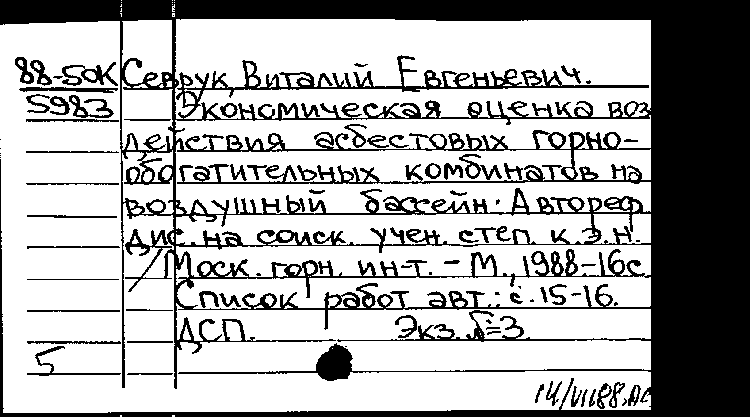 88-50К Севрук, Виталий Евгеньевич.
5983 Экономическая оценка воз
действия асбестовых горно-
обогатительных комбинатов на
воздушный бассейн: Автореф
дис. на соиск. учен. степ. к.э.н.
/Моск. горн. ин-т. - М., 1988-16с
Список работ авт.: с. 15-16.
ДСП. Экз. №3.
5